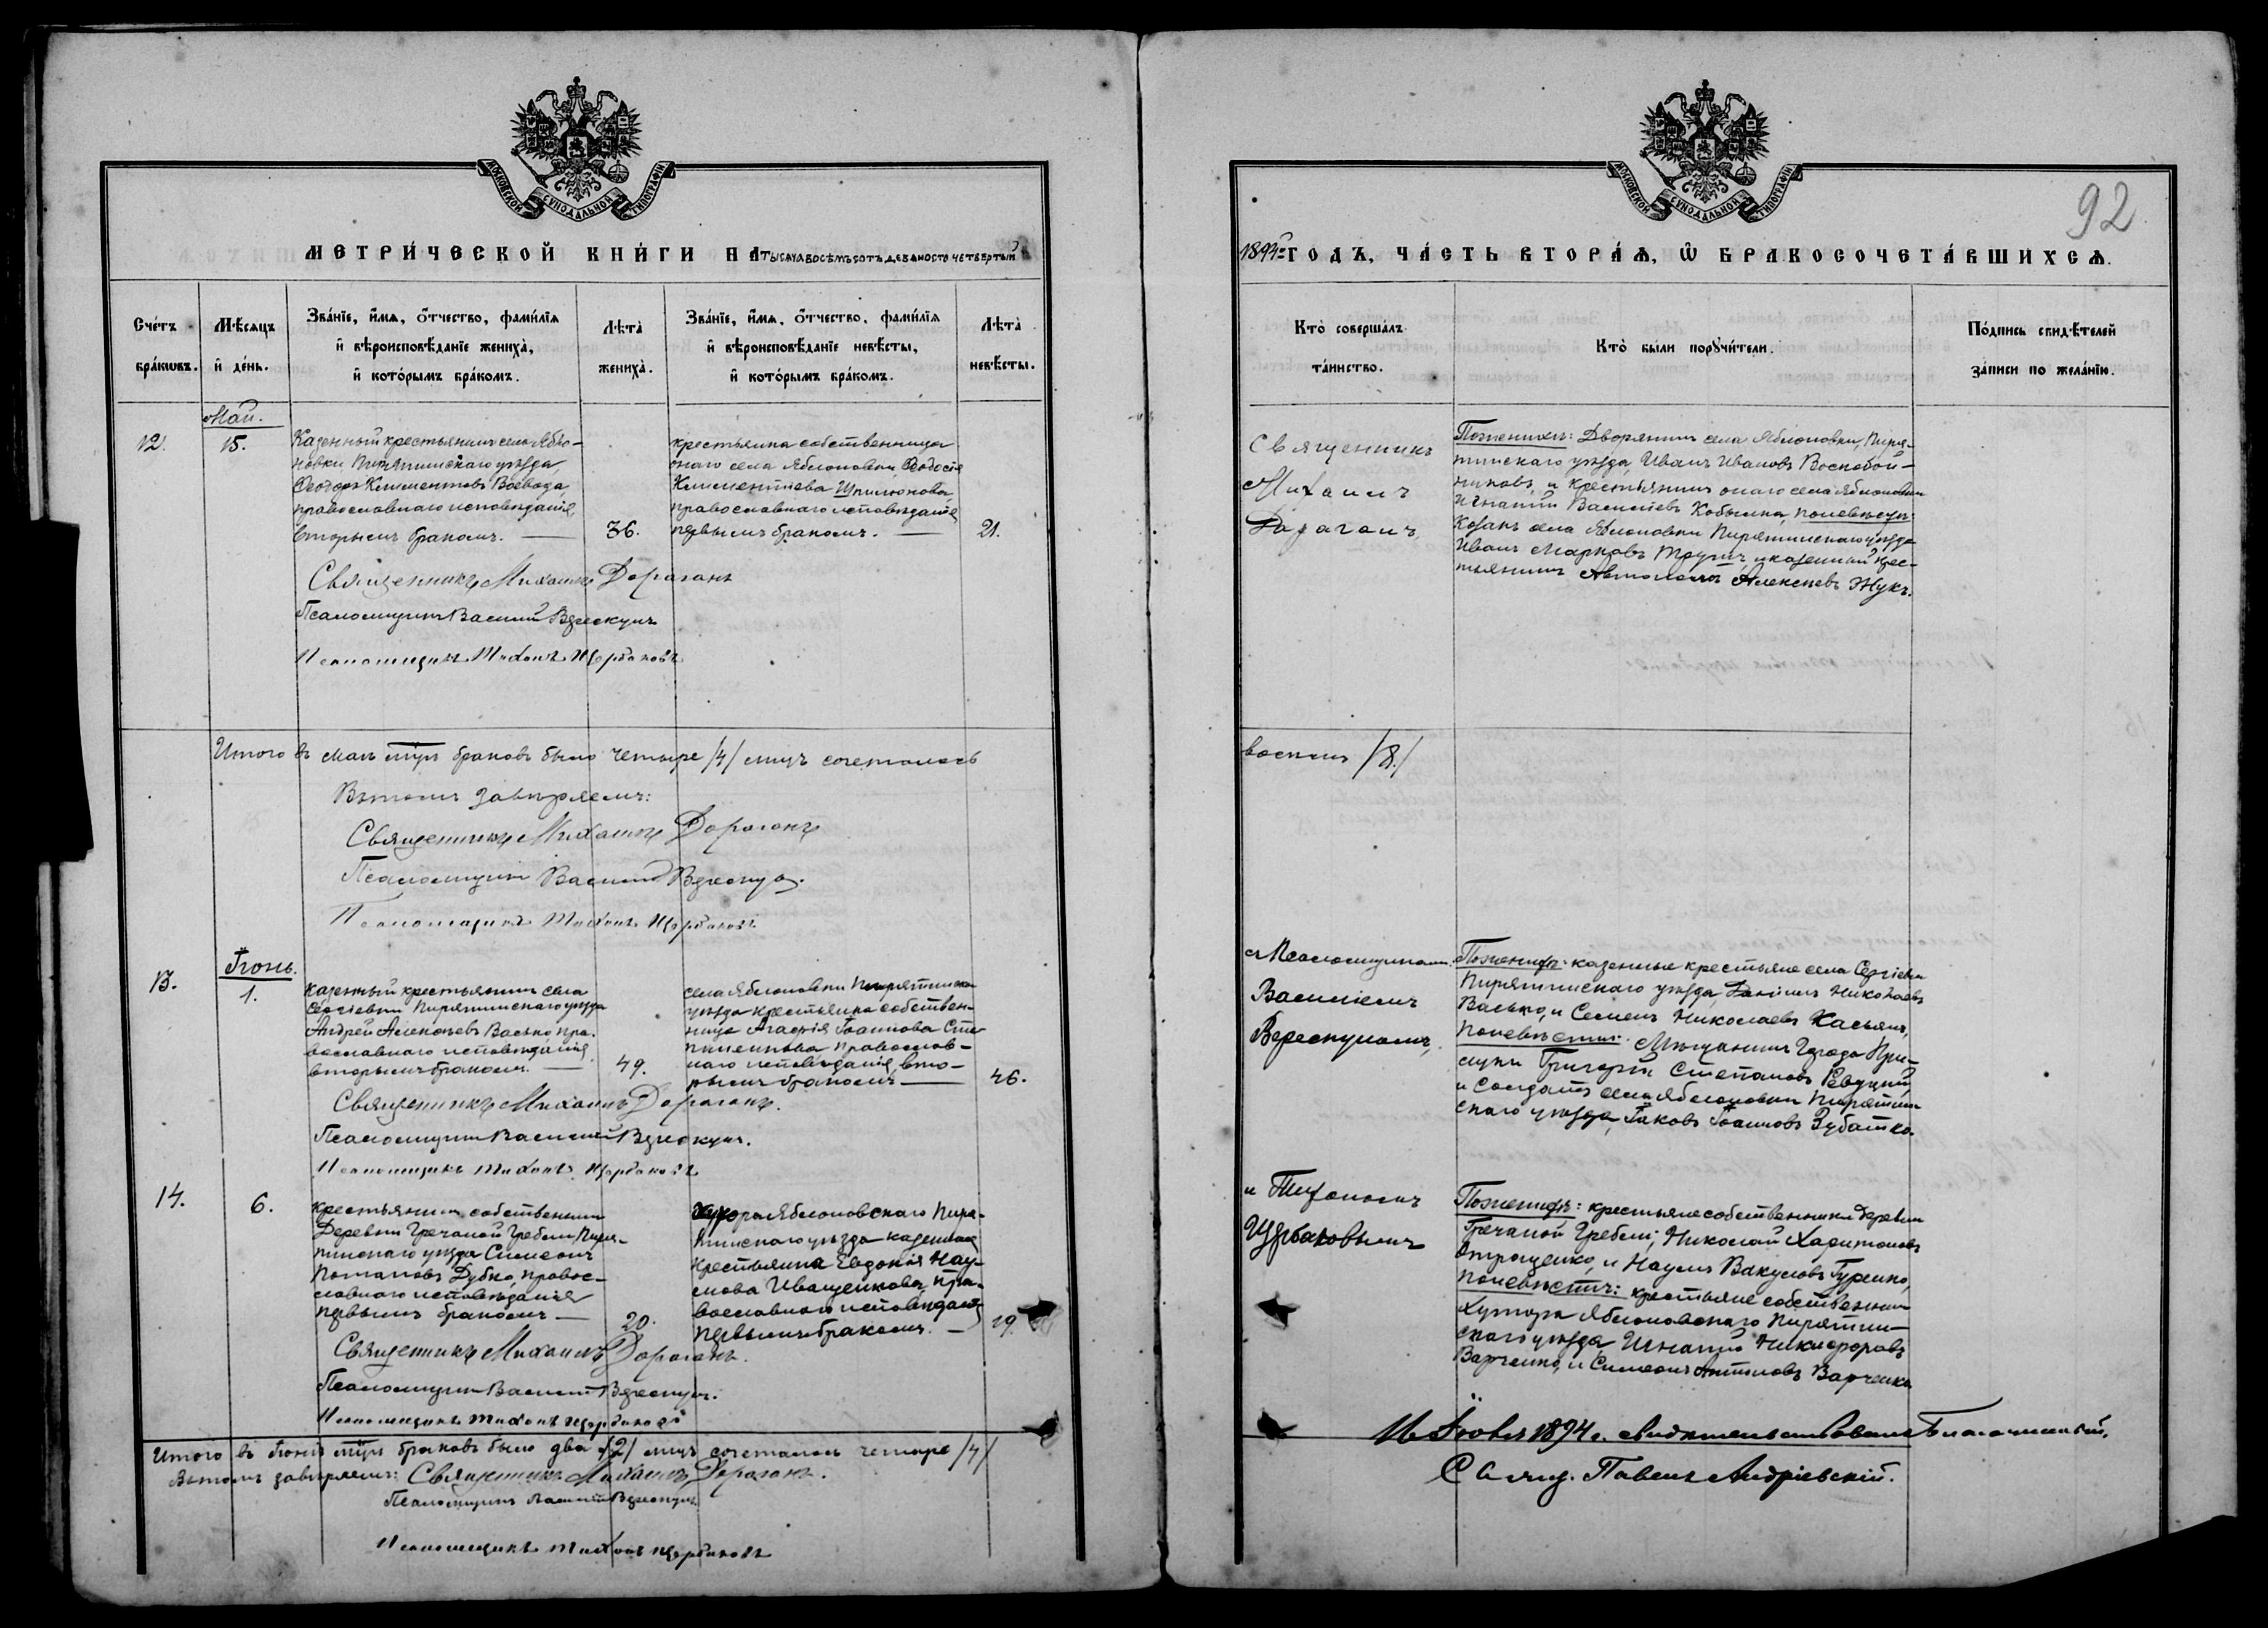 МОСКОВСКОЙ СУНОДАЛЬНОЙ ТИПОГРАФІИ
МЕТРИ́ЧЕСКОЙ КНИ́ГИ НА тысяча восемьсотъ девяносто четвертый
Сче́тъ бра́кωвъ.
Мѣ́сяцъ и҆ де́нь.
Зва́нїе, и҆́мя, ѻ҆́тчество, фами́лїя
и҆ вѣроисповѣ́данїе жениха̀,
и҆ кото́рымъ бра́комъ.
Лѣта̀
жениха̀.
Зва́нїе, и҆́мя, ѻ҆́тчество, фами́лїя
и҆ вѣроисповѣ́данїе невѣ́сты,
и҆ кото́рымъ бра́комъ.
Лѣта̀
невѣ́сты.
12.
Май.
15.
Казенный крестьянинъ села Ябло-
новки Пирятинскаго уѣзда
Ѳеодоръ Климентовъ Воевода,
православнаго исповѣданія
вторымъ бракомъ.
36.
крестьянка собственница
онаго села Яблоновки Ѳеодосія
Климентіева
православнаго исповѣданія
первымъ бракомъ.
21.
Священникъ Михаилъ Дараганъ
Псаломщикъ Василій Верескунъ
Псаломщикъ Тихонъ Щербаковъ
Итого въ маѣ мцѣ браковъ было четыре /4/ лицъ сочеталось
Въ томъ завѣряемъ:
Священникъ Михаилъ Дараганъ
Псаломщикъ Василій Верескунъ.
Псаломщикъ Тихонъ Щербаковъ
13.
Іюнь.
1.
Казенный крестьянинъ села
Сергіевки Пирятинскаго уѣзда
Андрей Алексѣевъ Васько, пра-
вославнаго исповѣданія
вторымъ бракомъ.
49.
села Яблоновки Пирятинска
уѣзда крестьянка собствен-
ница Агафія Іоаннова
православ-
наго исповѣданія вто-
рымъ бракомъ
46.
Священникъ Михаилъ Дараганъ.
Псаломщикъ Василій Верескунъ.
Псаломщикъ Тихонъ Щербаковъ
14.
6.
крестьянинъ собственникъ
Деревни Гречаной Гребли Пиря-
тинскаго уѣзда Симеонъ
Потаповъ Дубко, правос-
лавнаго исповѣданія
первымъ бракомъ
20.
хутора Яблоновскаго Пиря-
тинскаго уѣзда казенная
крестьянка Евдокія Нау-
мова Иващенкова, пра-
вославнаго исповѣданія
первымъ бракомъ.
19.
Священникъ Михаилъ Дараганъ.
Псаломщикъ Василій Верескунъ.
Псаломщикъ Тихонъ Щербаковъ
Итого въ Іюнѣ мцѣ браковъ было два /2/ лицъ сочеталось четыре /4/
Въ томъ завѣряемъ: Священникъ Михаилъ Дараганъ.
Псаломщикъ Василій Верескунъ
Псаломщикъ Тихонъ Щербаковъ
92
МОСКОВСКОЙ СУНОДАЛЬНОЙ ТИПОГРАФІИ
1894й ГОДЪ, ЧА́СТЬ ВТОРА́Я, Ѡ҆ БРАКОСОЧЕТА́ВШИХСЯ.
Кто̀ соверша́лъ
та́инство.
Кто̀ бы́ли порꙋчи́тели.
По́дпись свидѣ́телей
за́писи по жела́нїю.
Священникъ
Михаилъ
Дараганъ,
По женихѣ: Дворянинъ села Яблоновки, Пиря-
тинскаго уѣзда, Иванъ Ивановъ Воскобой-
никовъ, и крестьянинъ онаго села Яблоновки
Игнатій Василіевъ Кобылка, по невѣстѣ:
Козакъ села Яблоновки Пирятинскаго уѣзда
Иванъ Марковъ и казенный крес-
тьянинъ Алексѣевъ Жукъ.
восемь /8./
съ Псаломщиками
Василіемъ
Верескуномъ,
По женихѣ: казенные крестьяне села Сергіевки
Пирятинскаго уѣзда, Даніилъ Николаевъ
Васько, и Семенъ Николаевъ Касьянъ,
по невѣстѣ: Мѣщанинъ города При-
луки Григорій Степановъ Ревуцкій,
и Солдатъ села Яблоновки Пирятин
скаго уѣзда, Іаковъ Іоанновъ Зубатко.
и Тихономъ
Щербаковымъ
По женихѣ: крестьяне собственники деревни
Гречаной Гребли, Николай Харитоновъ
Отрощенко, и Наумъ Вакуловъ Гуренко,
по невѣстѣ: крестьяне собственники
хутора Яблоновскаго Пирятин-
скаго уѣзда Игнатій Никифоровъ
Варченко, и Симеонъ Антоновъ Варченко
1894 г. свидѣтельствовалъ Благочинный,
Свящ. Павелъ Андріевскій.